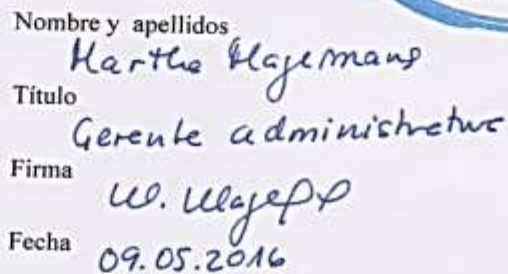 Nombre y apellidos
Martha Hagemans
Título
Gerente administrative
Firma
Fecha
09.05.2016